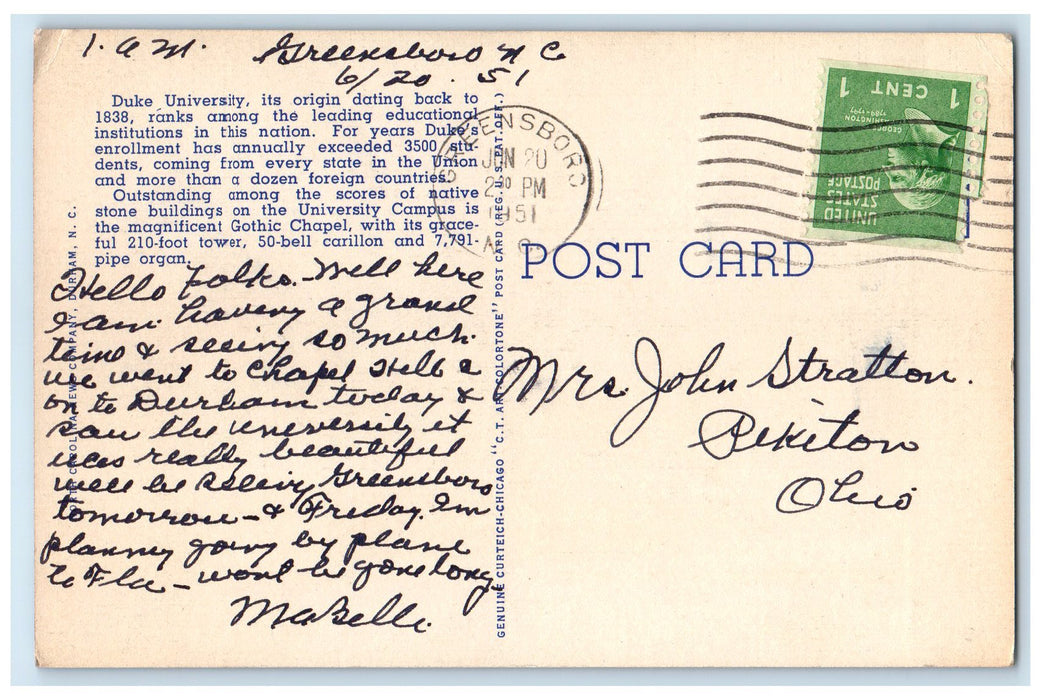 1. A.M. Greensboro N C
6/20. 51
Duke University, its origin dating back to
1838, ranks among the leading educational
institutions in this nation. For years Duke's
enrollment has annually exceeded 3500 stu-
dents, coming from every state in the Union
and more than a dozen foreign countries.
Outstanding among the scores of native
stone buildings on the University Campus is
the magnificent Gothic Chapel, with its grace-
ful 210-foot tower, 50-bell carillon and 7,791-
pipe organ.
Hello folks. Well here
I am. having a grand
time & seeing so much.
we went to Chapel Hill &
on to Durham today &
saw the university it
was really beautiful
will be seeing Greensboro
tomorrow - & Friday. Im
planning going by plane
to Fla - wont be gone long.
MaBelle.
CAROLINA NEWS COMPANY, DURHAM, N. C.
GENUINE CURTEICH-CHICAGO "C.T. ART-COLORTONE" POST CARD (REG. U.S. PAT. OFF.)
GREENSBORO
JUN 20
2 00 PM
1951
N. C.
POST CARD
1 CENT 1
GEORGE WASHINGTON
1789-1797
UNITED
STATES
POSTAGE
Mrs. John Stratton.
Pikiton
Ohio